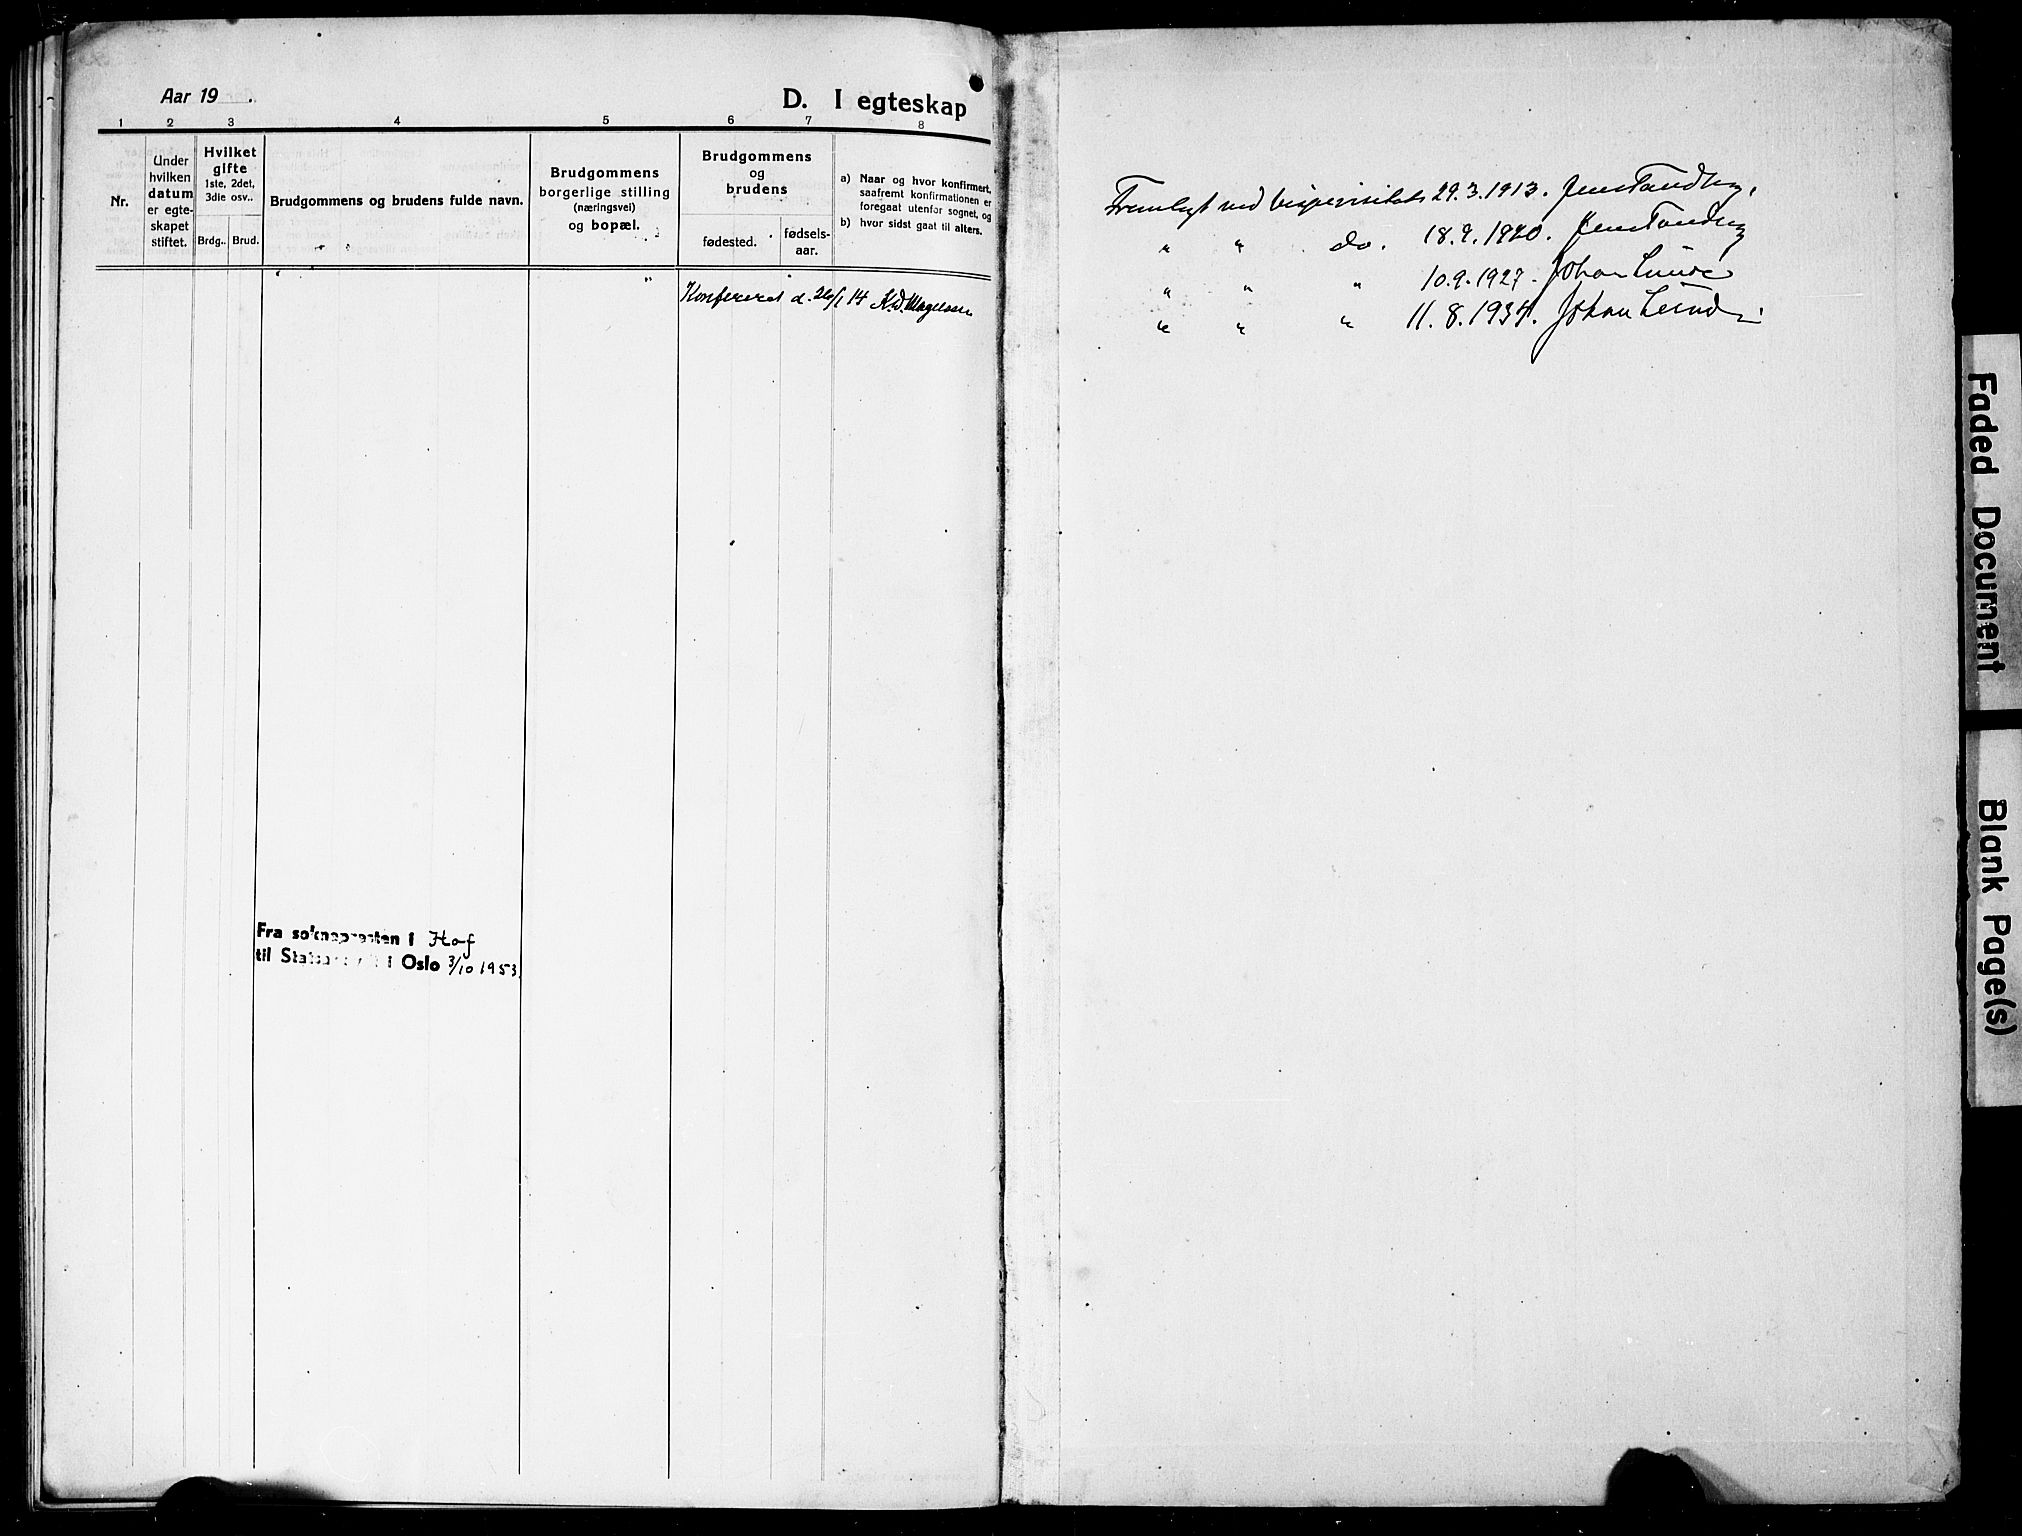 Aar 19 .
D. I egteskap
1 2 3 4 5 6 7 8
Nr.
Under
hvilken
datum
er egte-
skapet
stiftet.
Hvilket
gifte
1ste, 2det,
3die osv..
Brdg.. Brud.
Brudgommens og brudens fulde navn.
Brudgommens
borgerlige stilling
(næringsvei)
og bopæl.
Brudgommens
og
brudens
fødested.
fødsels-
aar.
a) Naar og hvor konfirmert,
saafremt konfirmationen er
foregaat utenfor sognet, og
b) hvor sidst gaat til alters.
Konfereret d. 26/1 14 K.D. Magelssen
Fra soknepresten i Hof
til Statsarkivet i Oslo 3/10 1953.
Fremlagt ved bispevisitats 29.3.1913. Jens Tandberg.
" " do. 18.9.1920. Jens Tandberg
" " " 10.9.1927. Johan Lunde
" " " 11.8.1934. Johan Lunde
Faded Document
Blank Page(s)